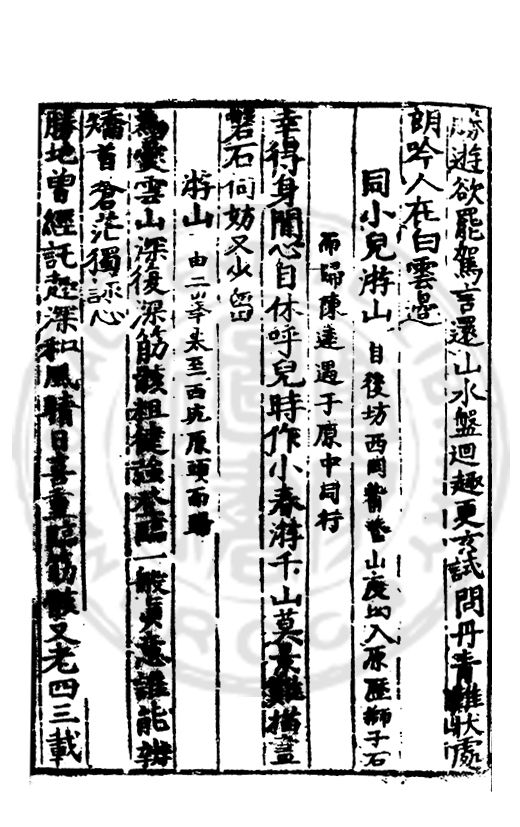 勝遊欲罷駕言還山水盤迴趣更玄試問丹青難狀處
朗吟人在白雲邊
同小兒游山自後坊西岡 山度 入原歷獅子石
而歸陳達遇于原中同行
幸得身閒心自休呼兒時作小春游千山莫景難描畫
磐石何妨又少留
游山由二峯來至西坑原頭而歸
為愛雲山深復深筋骸粗健強登臨一般真意誰能辨
矯首蒼茫獨詠心
勝地曾經託趣深和風晴日喜重臨筋骸又老四三載